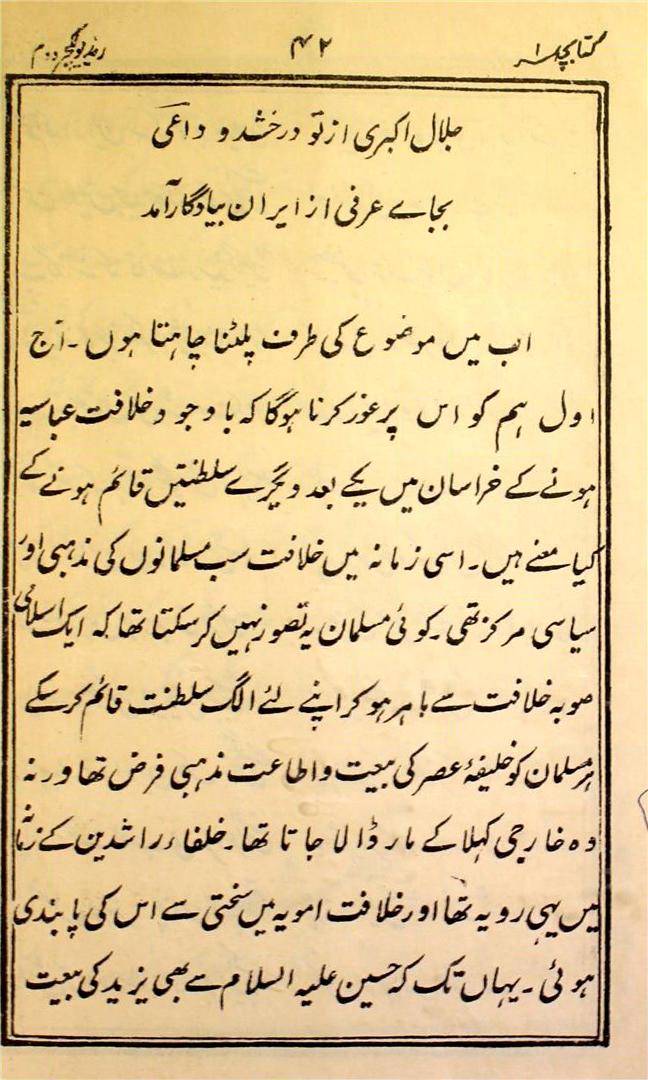 کتابچہ ۱ ۴۲ ریڈیو لکچر دوم
جلال اکبری از تو درخشد و داعی
بجاے عرفی از ایران بیادگار آمد
اب میں موضوع کی طرف پلٹنا چاہتا ہوں۔ آج
اول ہم کو اس پر غور کرنا ہوگا کہ باوجود خلافت عباسیہ
ہونے کے خراسان میں یکے بعد دیگرے سلطنتیں قائم ہونے کے
کیا معنے ہیں۔ اسی زمانہ میں خلافت سب مسلمانوں کی مذہبی اور
سیاسی مرکز تھی۔ کوئی مسلمان یہ تصور نہیں کرسکتا تھا کہ ایک اسلامی
صوبہ خلافت سے باہر ہوکر اپنے لئے الگ سلطنت قائم کرسکے
ہر مسلمان کو خلیفۂ عصر کی بیعت و اطاعت مذہبی فرض تھا ورنہ
وہ خارجی کہلا کے مار ڈالا جاتا تھا۔ خلفاء راشدین کے زمانہ
میں یہی رویہ تھا اور خلافت امویہ میں سختی سے اس کی پابندی
ہوئی۔ یہاں تک کہ حسین علیہ السلام سے بھی یزید کی بیعت